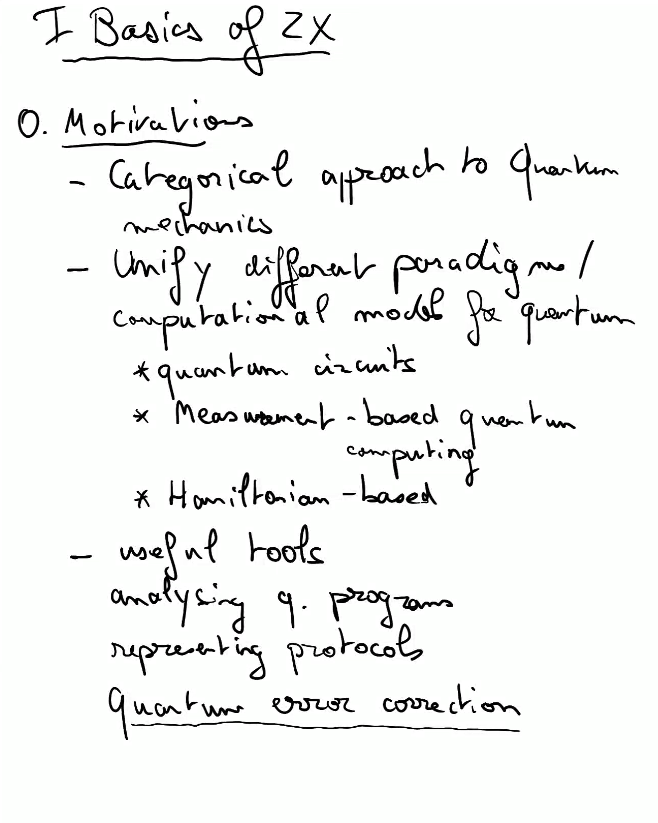 I Basics of ZX
0. Motivations
- Categorical approach to Quantum
mechanics
- Unify different paradigms /
computational models for quantum
* quantum circuits
* Measurement-based quantum
computing
* Hamiltonian-based
- useful tools
analysing q. programs
representing protocols
Quantum error correction